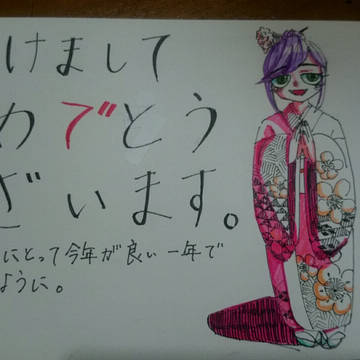 けまして
わでとう
ざいます。
にとって今年が良い一年で
ように。